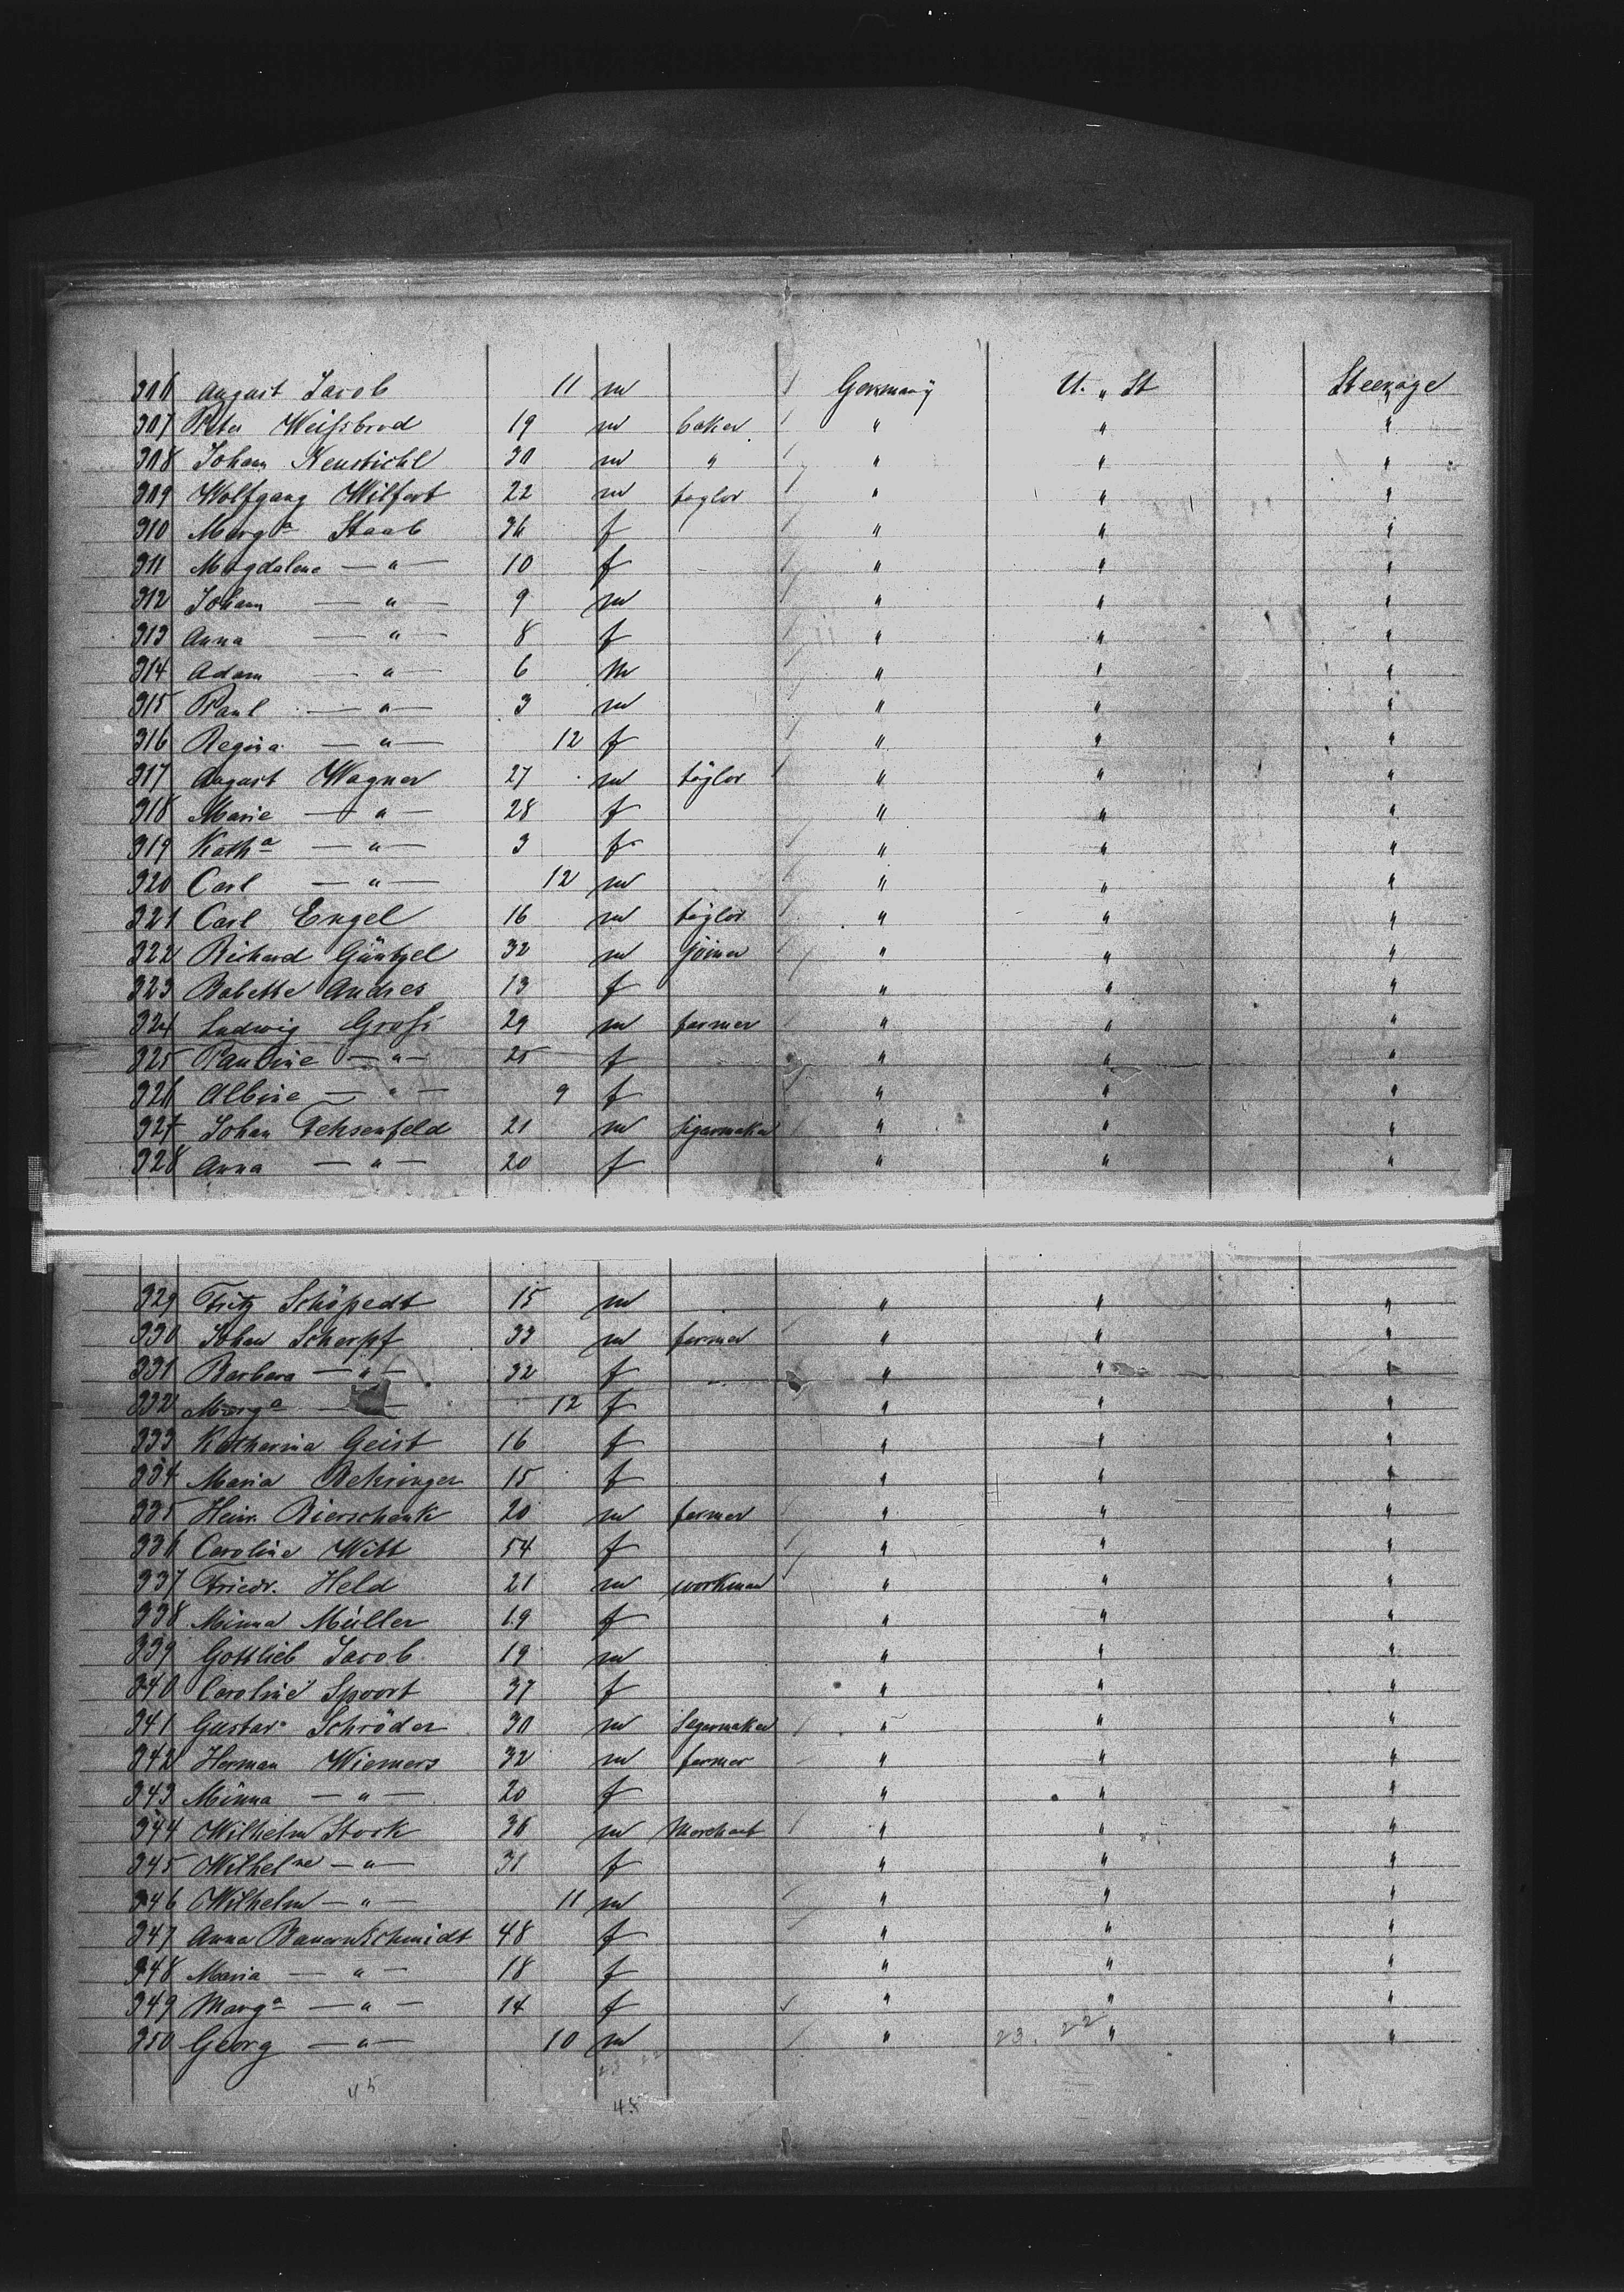 306 August Jacob 11 m Germany U. „ St Steerage
307 Peter Weißbrod 19 m baker " " "
308 Johann Neubichl 30 m " " " "
309 Wolfgang Wilfert 22 m taylor " " "
310 Marga Staab 36 f " " "
311 Magdalena — " — 10 f " " "
312 Johann — " — 9 m " " "
313 Anna — " — 8 f " " "
314 Adam — " — 6 m " " "
315 Paul — " — 3 m " " "
316 Regina — " — 12 f " " "
317 August Wagner 27 m taylor " " "
318 Marie — " — 28 f " " "
319 Katha — " — 3 f " " "
320 Carl — " — 12 m " " "
321 Carl Engel 16 m taylor " " "
322 Richard Güntzel 32 m joiner " " "
323 Babette Andres 13 f " " "
324 Ludwig Groß 29 m farmer " " "
325 Pauline — " — 25 f " " "
326 Albine — " — 9 f " " "
327 Johan Fehsenfeld 21 m Sigarmaker " " "
328 Anna — " — 20 f " " "
329 Fritz Schöpedt 15 m " " "
330 Johan Scherpf 33 m farmer " " "
331 Barbara — " — 32 f " " "
332 Marga — — 12 f " " "
333 Katharina Geist 16 f " " "
334 Maria Behringer 15 f " " "
335 Heinr. Bierschenk 20 m farmer " " "
336 Caroline Witt 54 f " " "
337 Friedr. Held 21 m workman " " "
338 Minna Müller 19 f " " "
339 Gottlieb Jacob 19 m " " "
340 Caroline Spoort 37 f " " "
341 Gustav Schröder 30 m Segarmaker " " "
342 Herman Wiemers 32 m farmer " " "
343 Minna — " — 20 f " " "
344 Wilhelm Stock 36 m Merchant " " "
345 Wilhelne — " — 31 f " " "
346 Wilhelm — " — 11 m " " "
347 Anna Bauernschmidt 48 f " " "
348 Maria — " — 18 f " " "
349 Marga — " — 14 f " " "
350 Georg — " — 10 m " 23. 22 " "
23 22
45
45